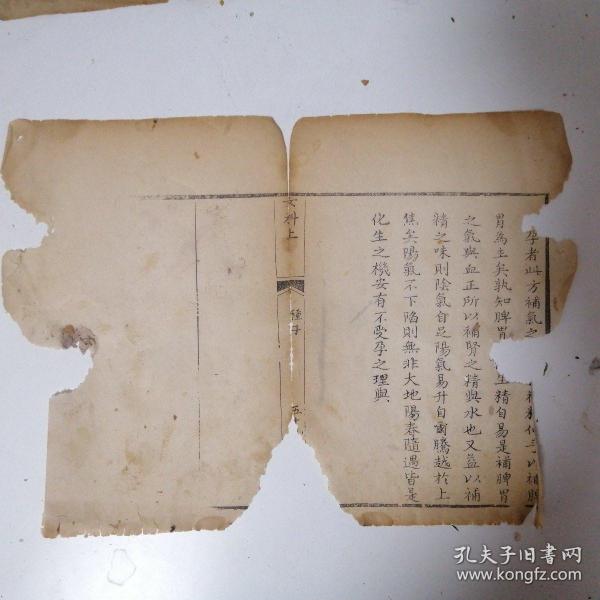 孕者此方補氣之 補㸃化与以補脾
胃為主矣孰知脾胃 生精自易是補脾胃
之氣與血正所以補腎之精與水也又益以補
精之味則陰氣自足陽氣易升自爾騰越於上
焦矣陽氣不下陷則無非大地陽春隨遇皆是
化生之機安有不受孕之理與
女科上
種子
五
孔夫子旧书网
www.kongfz.com